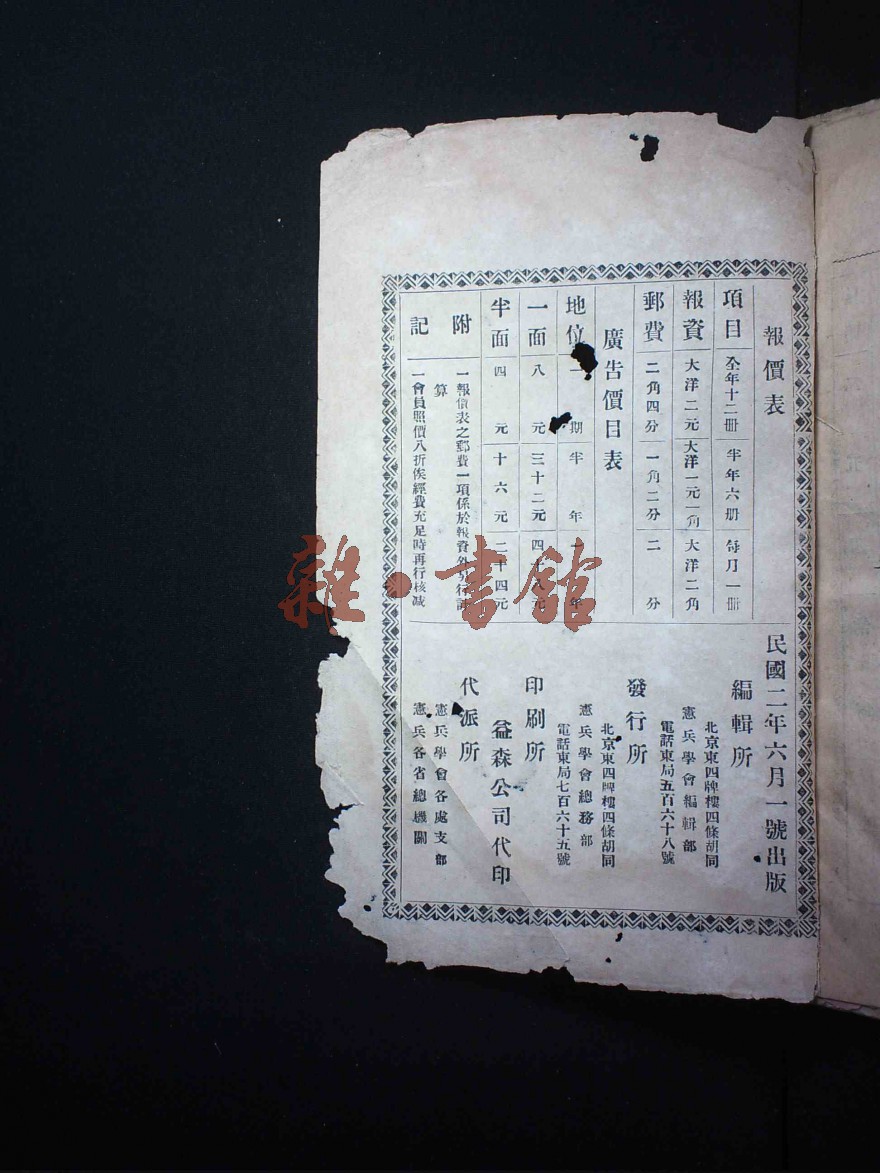 報價表
項目 全年十二冊 半年六册 每月一冊
報資 大洋二元 大洋一元一角 大洋二角
郵費 二角四分 一角二分 二分
廣告價目表
地位 一期 半年 一年
一面 八元 三十二元 四十八元
半面 四元 十六元 二十四元
附記
一報價表之郵費一項係於報資外另行計
算
一會員照價八折俟經費充足時再行核减
民國二年六月一號出版
編輯所
北京東四牌樓四條胡同
憲兵學會編輯部
電話東局五百六十八號
發行所
北京東四牌樓四條胡同
憲兵學會總務部
電話東局七百六十五號
印刷所
益森公司代印
代派所
憲兵學會各處支部
憲兵各省總機關
雜·書館